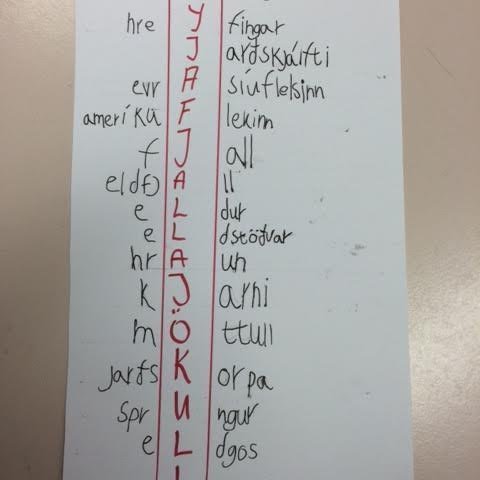 hre Y fingar
J arðskjálfti
evr A síuflekinn
ameríku F lekinn
f J all
eldfj A ll
e L dur
e L dstöðvar
hr A un
k J arni
m Ö ttull
jarðs K orpa
spr U ngur
e L dgos